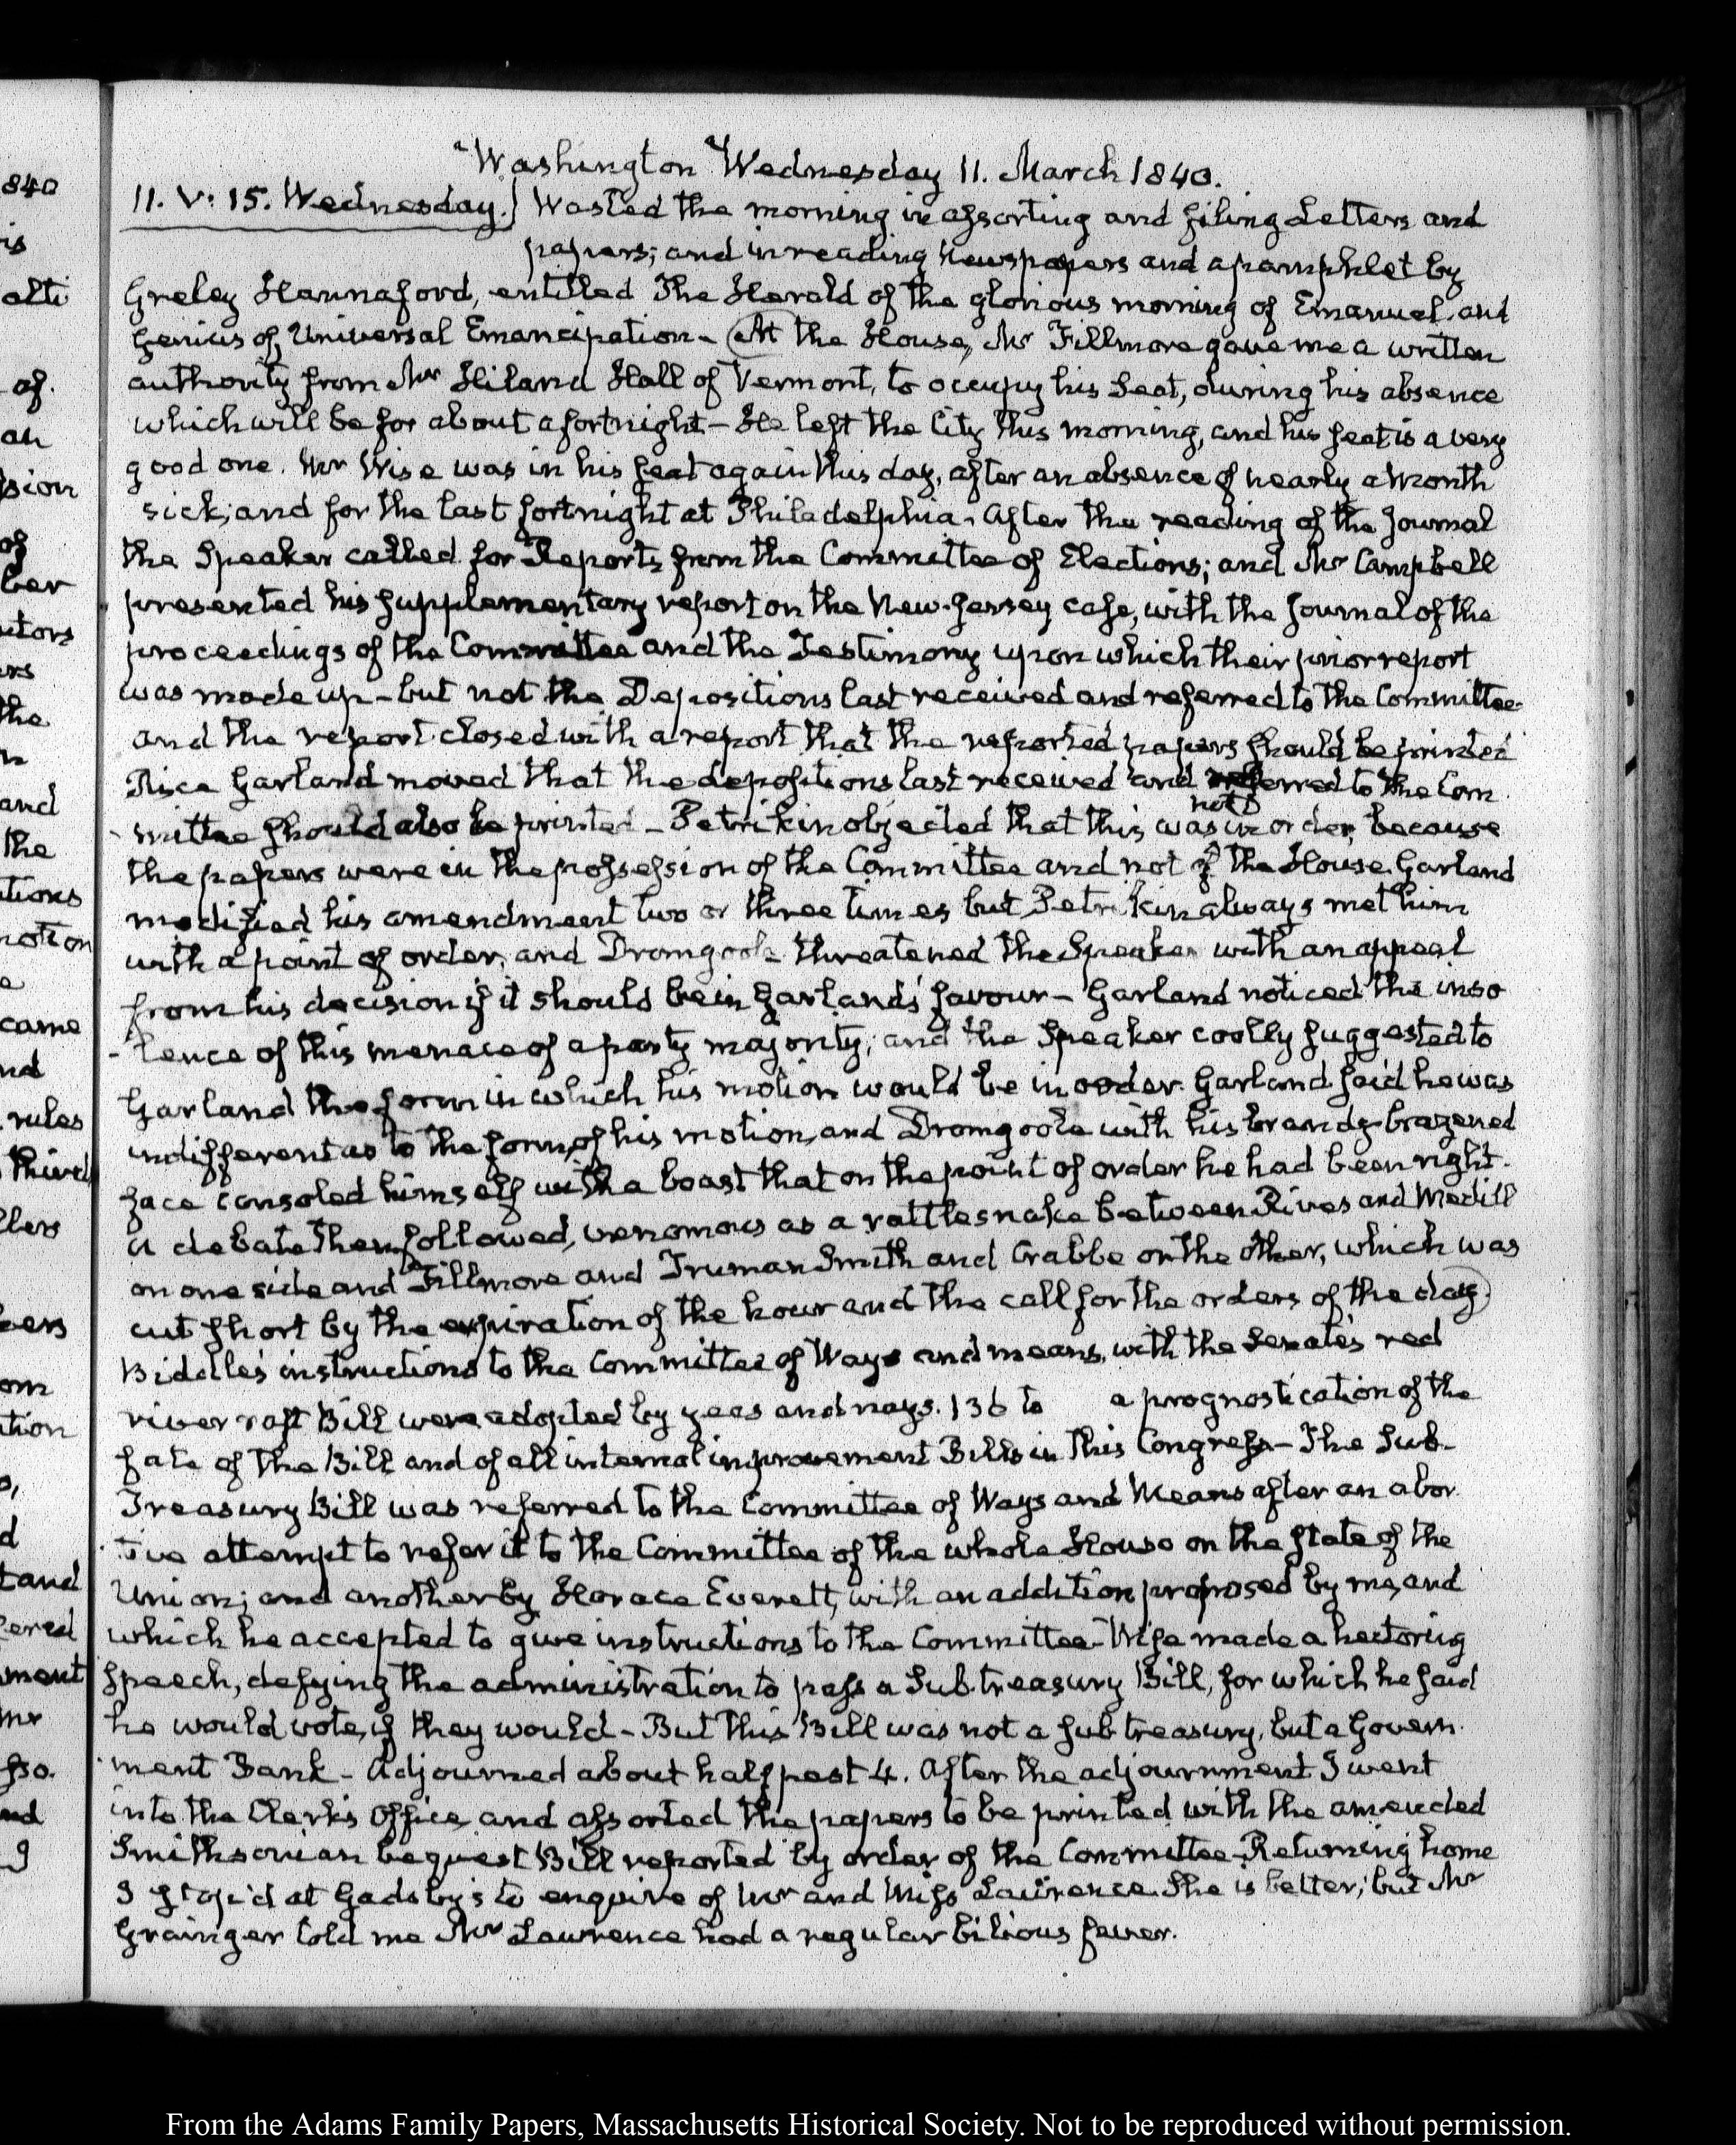 840
is
alti
of.
an
sion
of
ber
utors
ers
the
n
and
the
tions
notion
e
came
nd
rules
third
llers
bers
om
tion
s,
d
tand
ered
ment
mr
sso.
nd
g
Washington Wednesday 11. March 1840.
11. V: 15. Wednesday.} Wasted the morning in assorting and filing Letters and
papers; and in reading Newspapers and a pamphlet by
Greley Hannaford, entitled The Herald of the glorious morning of Emanuel and
Genius of Universal Emancipation – At the House, Mr Fillmore gave me a written
authority from Mr Hiland Hall of Vermont, to occupy his Seat, during his absence
which will be for about a fortnight – He left the City this morning, and his seat is a very
good one. Mr Wise was in his seat again this day, after an absence of nearly a month
sick; and for the last fortnight at Philadelphia. After the reading of the journal
the Speaker called for Reports from the Committee of Elections; and Mr Campbell
presented his supplementary report on the New-Jersey case, with the journal of the
proceedings of the Committee and the Testimony upon which their prior report
was made up – but not the Depositions last received and referred to the Committee
and the report closed with a report that the reported papers should be printed
Rice Garland moved that the depositions last received and referred to the Com
mittee should also be printed – Petrikin objected that this was not in order, because
the papers were in the possession of the Committee and not of the House. Garland
modified his amendment two or three times but Petrikin always met him
with a point of order, and Dromgoole threatened the Speaker with an appeal
from his decision if it should be in Garland's favour – Garland noticed the inso
-lence of this menace of a party majority; and the Speaker coolly suggested to
Garland the form in which his motion would be in order. Garland said he was
indifferent as to the form of his motion, and Dromgoole with his brandy-brazened
face consoled himself with a boast that on the point of order he had been right.
A debate then followed, venomous as a rattlesnake between Rives and Medill
on one side and Fillmore and Truman Smith and Crabbe on the other, which was
cut short by the expiration of the hour and the call for the orders of the day
Biddle's instructions to the Committee of Ways and means, with the Senate's red
river raft Bill were adopted by yeas and nays. 136 to a prognostication of the
fate of the Bill and of all internal improvement Bills in this Congress – The Sub-
Treasury Bill was referred to the Committee of Ways and Means after an abor
tive attempt to refer it to the Committee of the whole House on the state of the
Union; and another by Horace Everett, with an addition proposed by me, and
which he accepted to give instructions to the Committee – Wise made a hectoring
speech, defying the administration to pass a Sub-treasury Bill, for which he said
he would vote, if they would – But this Bill was not a sub treasury, but a Govern-
ment Bank – Adjourned about half past 4. After the adjournment I went
into the Clerk's Office and assorted the papers to be printed with the amended
Smithsonian bequest Bill reported by order of the Committee – Returning home
I stop'd at Gadsby's to enquire of Mr and Miss Lawrence. She is better; but Mr
Grainger told me Mr Lawrence had a regular bilious fever.
From the Adams Family Papers, Massachusetts Historical Society. Not to be reproduced without permission.